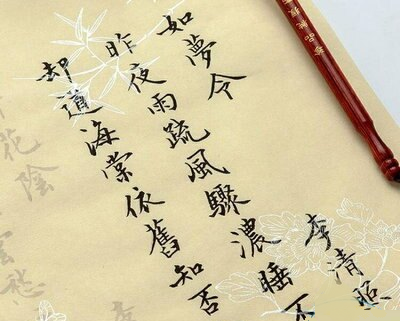 如夢令 李清照
昨夜雨疏風驟濃睡不
却道海棠依舊知否
花陰
雲愁